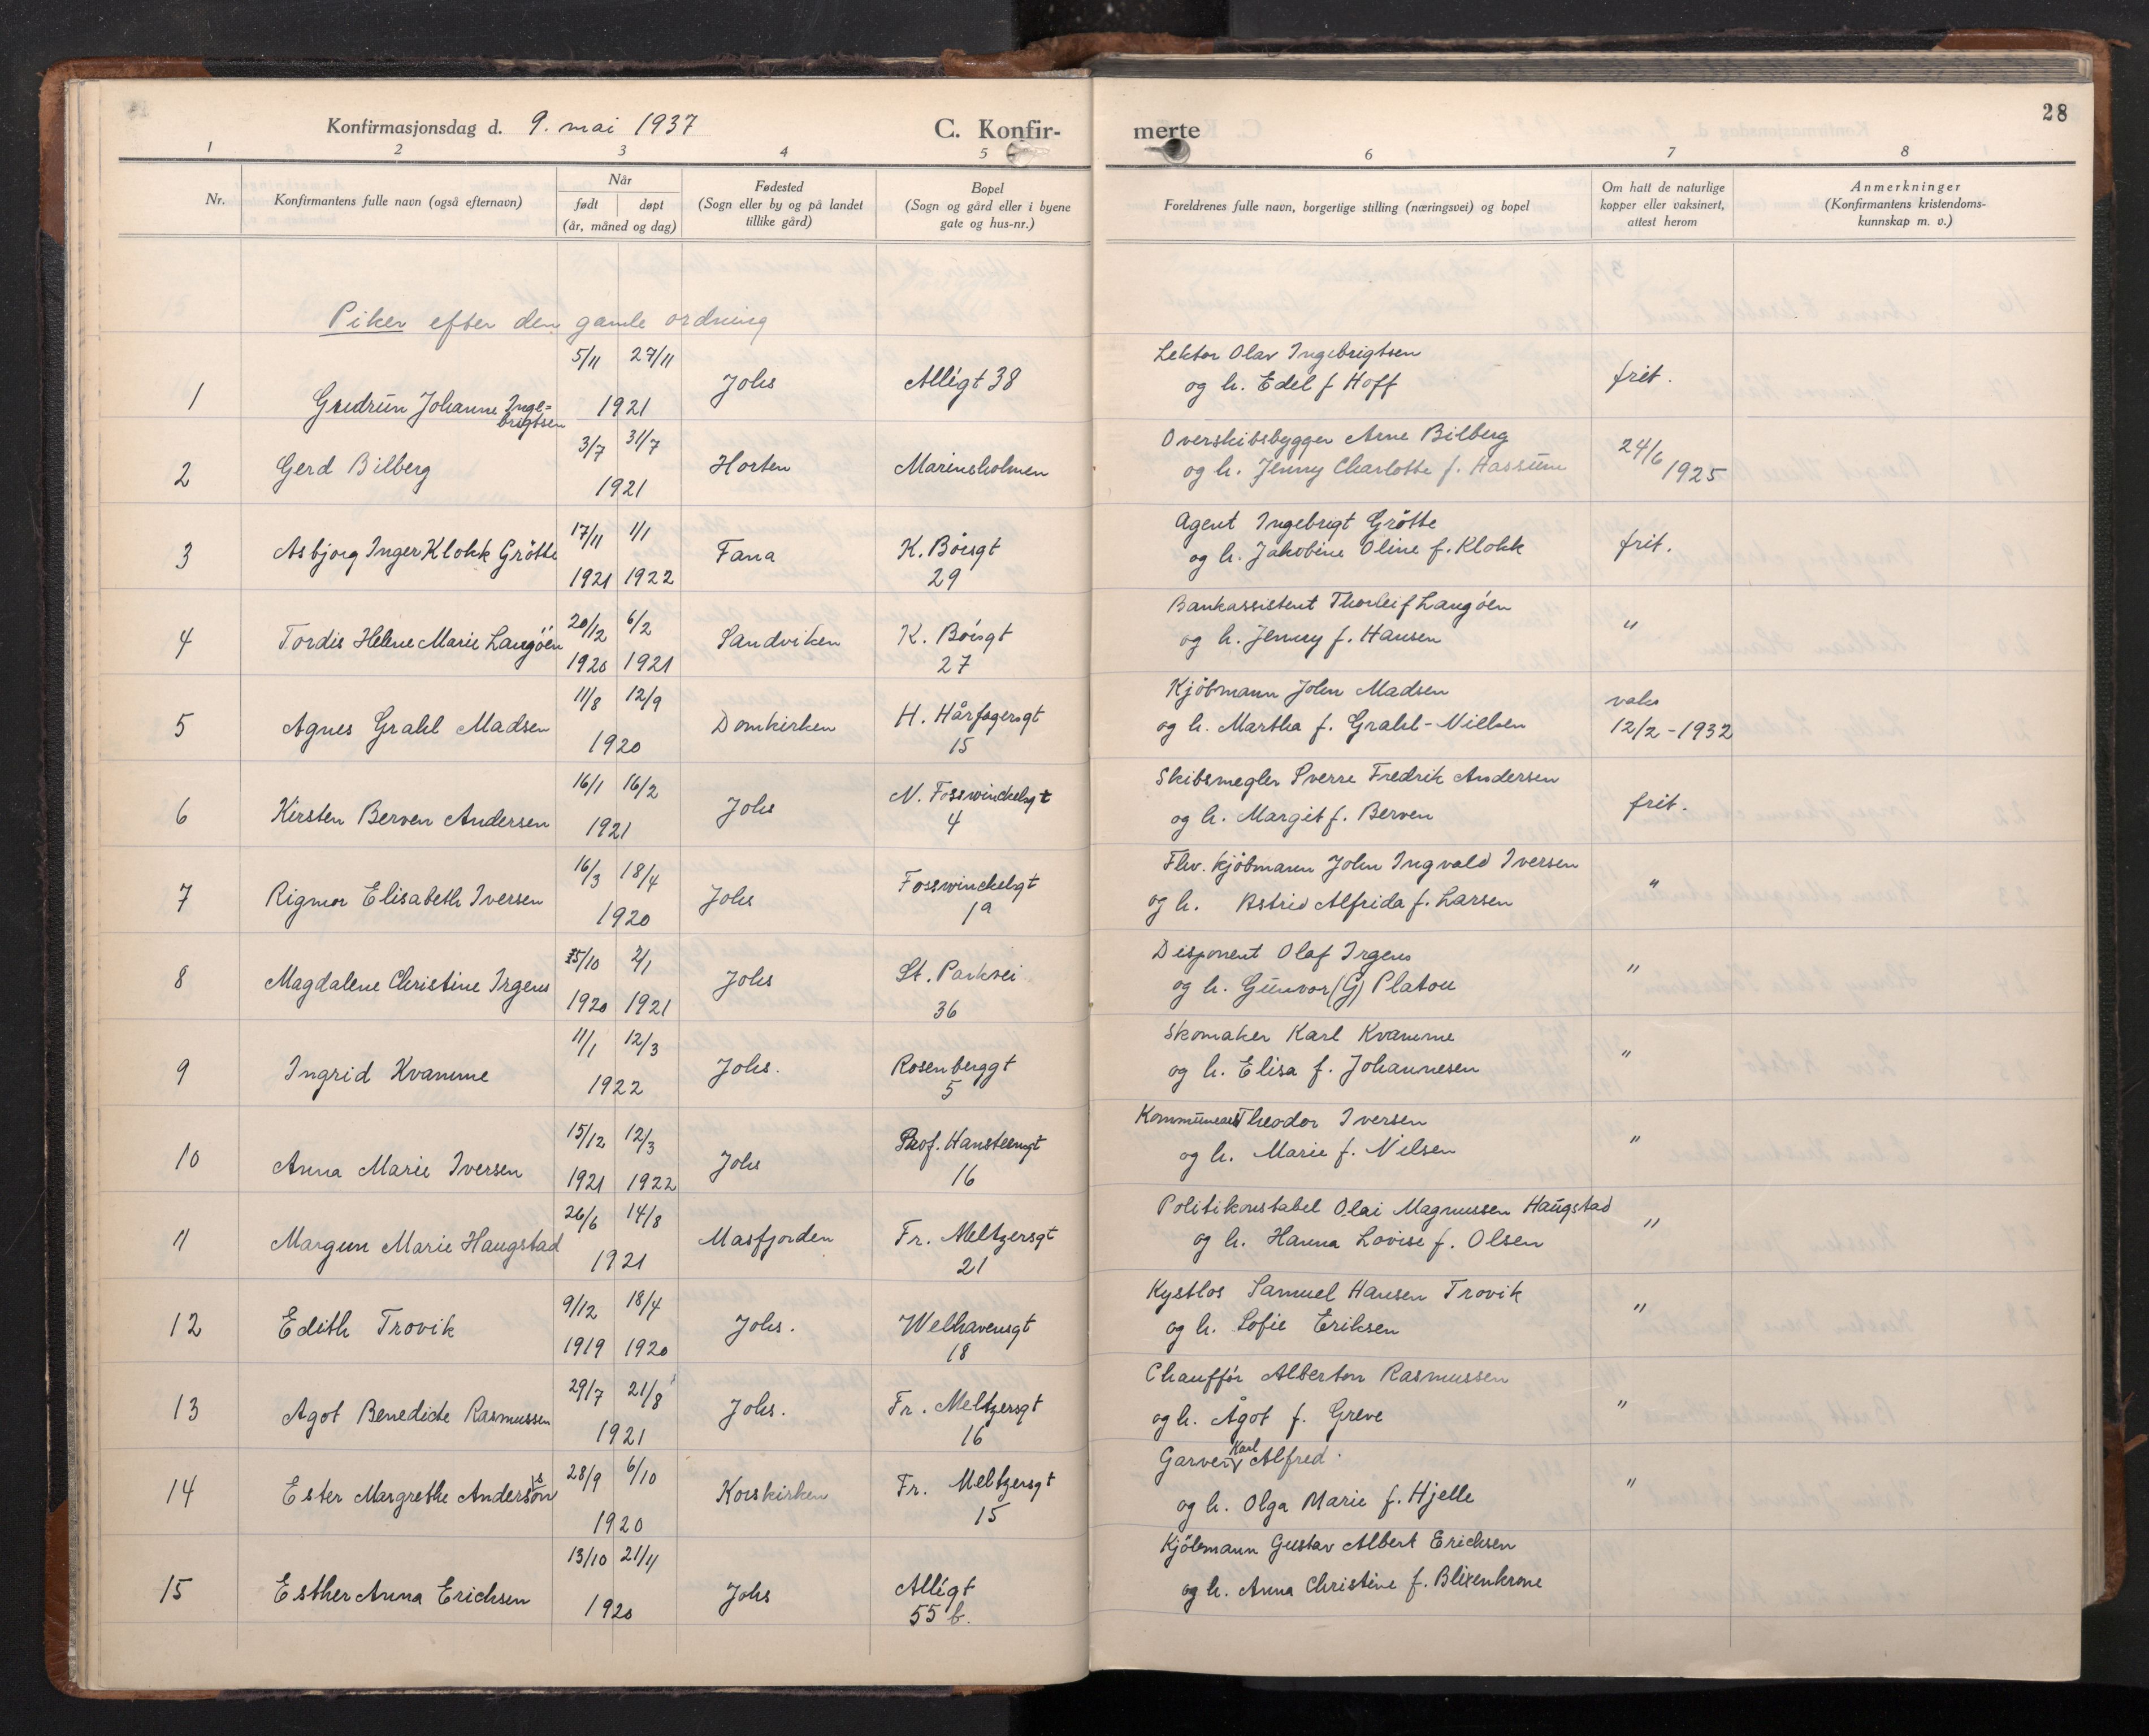 28
Konfirmasjonsdag d. 9. mai 1937 C. Konfir- merte
1 2 3 4 5 6 7 8
Nr.
Konfirmantens fulle navn (også efternavn)
Når
født døpt
(år, måned og dag)
Fødested
(Sogn eller by og på landet
tillike gård)
Bopel
(Sogn og gård eller i byene
gate og hus-nr.)
Foreldrenes fulle navn, borgertige stilling (næringsvei) og bopel
Om hatt de naturlige
kopper eller vaksinert,
attest herom
Anmerkninger
(Konfirmantens kristendoms-
kunnskap m. v.)
Piker efter den gamle ordning
5/11 27/11 Lektor Olav Ingebrigtsen
1 Gudrun Johanne Inge= Johs Allégt 38 og h. Edel f Hoff frit.
brigtsen 1921
3/7 31/7 Overskibsbygger Arne Bilberg
2 Gerd Bilberg Horten Marinsholmen og h. Jenny Charlotte f. Hassum 24/6
1921 1925
17/11 1/1 Agent Ingebrigt Grötte
3 Asbjorg Inger Klokk Grötte Fana K. Böisgt og h. Jakobine Oline f. Klokk frit.
1921 1922 29
20/12 6/2 Bankassistent Thorleif Langöen
4 Tordis Helene Marie Langöen Sandviken K. Böisgt og h. Jenny f. Hansen "
1920 1921 27
11/8 12/9 Kjöbmann John Madsen vaks
5 Agnes Grahl Madsen Domkirken H. Hårfagersgt og h. Martha f. Grahl-Nielsen 12/2 - 1932
1920 15
16/1 16/2 Skibsmegler Sverre Fredrik Andersen
6 Kirsten Berven Andersen Johs N. Fosswinckelsgt og h. Margit f. Berven frit.
1921 4
16/3 18/4 Fhv. kjöbmann John Ingvald Iversen
7 Rigmor Elisabeth Iversen Johs Fosswinckelsgt og h. Astrid Alfrida f. Larsen "
1920 1a
/10 2/1 Disponent Olaf Irgens
8 Magdalene Christine Irgens Johs St. Parkvei og h. Gunvor (G) Platou "
1920 1921 36
11/1 12/3 Skomaker Karl Kvamme
9 Ingrid Kvamme Johs. Rosenberggt og h. Elisa f. Johannesen "
1922 5
15/12 12/3 Theodor Iversen
10 Anna Marie Iversen Johs Prof. Hansteensgt og h. Marie f. Nilsen "
1921 1922 16
26/6 14/8 Politikonstabel Olai Magnussen Haugstad
11 Margun Marie Haugstad Masfjorden Fr. Meltzersgt og h. Hanna Lovise f. Olsen "
1921 21
9/12 18/4 Kystlos Samuel Hansen Trovik
12 Edith Trovik Johs. Welhavensgt og h. Sofie Eriksen "
1919 1920 18
29/7 21/8 Chaufför Alberton Rasmussen
13 Agot Benedicte Rasmussen Johs. Fr. Meltzersgt og h. Ågot f. Greve "
1921 16
28/9 6/10 Garver Karl Alfred
14 Ester Margrethe Anderson Korskirken Fr. Meltzersgt og h. Olga Marie f. Hjelle "
1920 15
13/10 21/11 Kjöbmann Gustav Albert Erichsen
15 Esther Anna Erichsen Johs Allégt og h. Anna Christine f. Blixenkrone
1920 55 b.